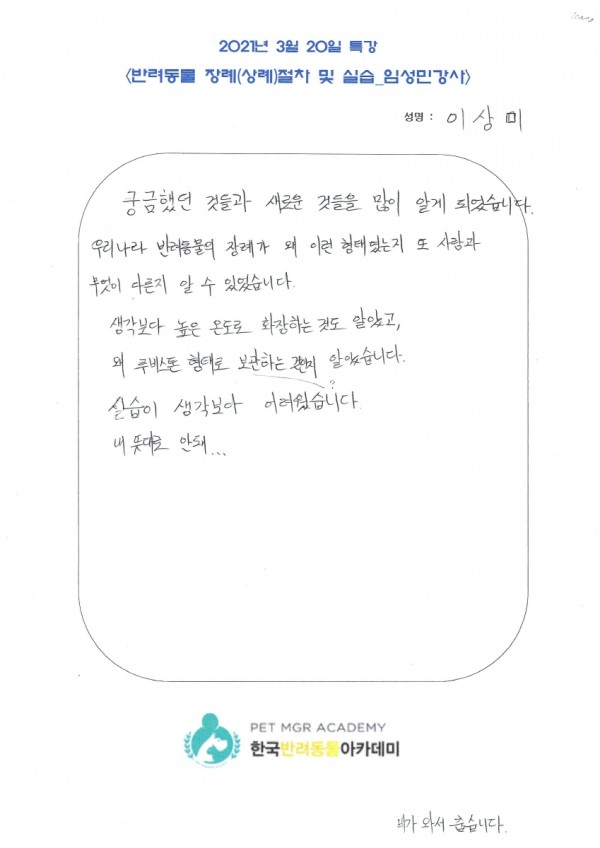 2021년 3월 20일 특강
<반려동물 장례(상례)절차 및 실습_임성민강사>
성명 : 이상미
궁금했던 것들과 새로운 것들을 많이 알게 되었습니다.
우리나라 반려동물의 장례가 왜 이런 형태였는지 또 사람과
무엇이 다른지 알 수 있었습니다.
생각보다 높은 온도로 화장하는 것도 알았고,
왜 루비스톤 형태로 보관하는 알았습니다.
?
실습이 생각보아 어려웠습니다.
내 뜻대로 안돼...
PET MGR ACADEMY
한국반려동물아카데미
비가 와서 춥습니다.